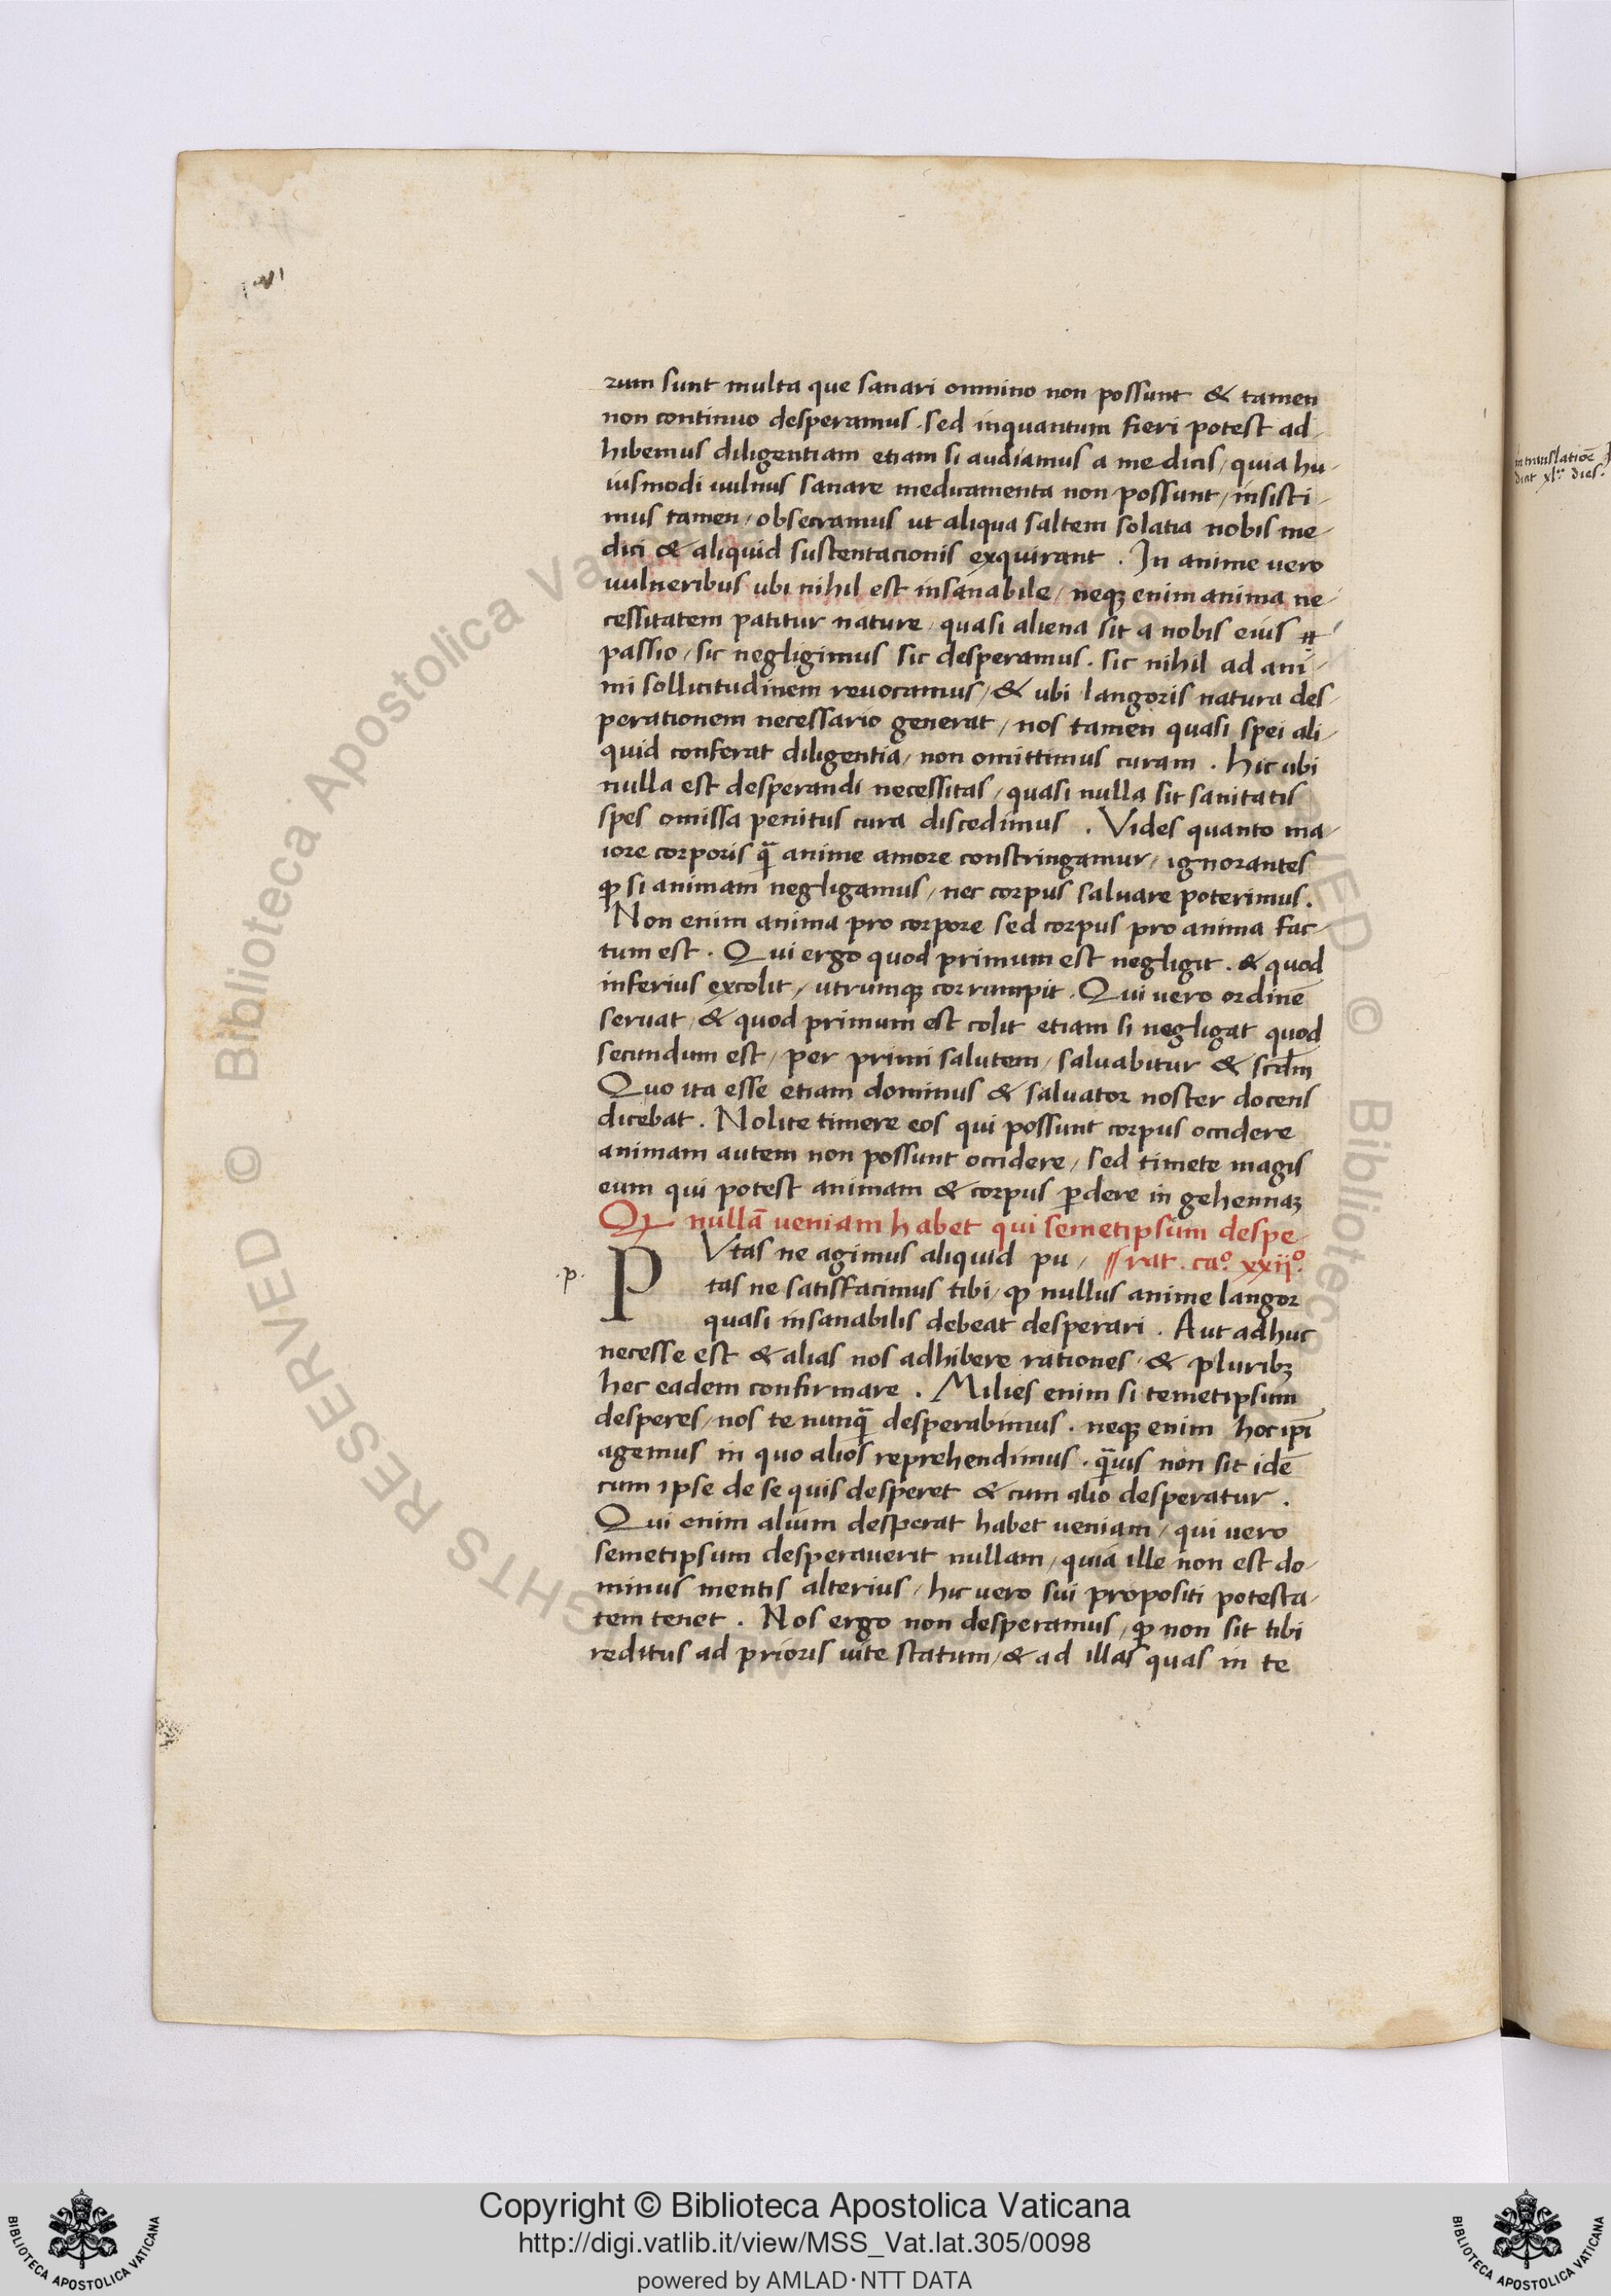 rum sunt multa que sanari omnino non possunt & tamen
non continuo desperamus. sed inquantum fieri potest ad-
hibemus diligentiam etiam si audiamus a medicis, quia hu-
iusmodi uulnus sanare medicamenta non possunt, insisti-
mus tamen, obsecramus ut aliqua saltem solatia nobis me-
dici & aliquid sustentacionis exquirant. In anime vero
uulneribus ubi nihil est insanabile, neqꝫ enim anima ne-
cessitatem patitur nature, quasi aliena sit a nobis eius
passio, sic negligimus sic desperamus. sic nihil ad ani-
mi sollicitudinem reuocamus, & ubi langoris natura des-
perationem necessario generat, nos tamen quasi spei ali-
quid conferat diligentia, non omittimus curam. hic ubi
nulla est desperandi necessitas, quasi nulla sit sanitatis
spes omissa penitus cura discedimus. Vides quanto ma-
iore corporis qͣ̄ anime amore constringamur, ignorantes
ꝙ si animam negligamus, nec corpus saluare poterimus.
Non enim anima pro corpore sed corpus pro anima fac-
tum est. Qui ergo quod primum est negligit. & quod
inferius excolit, utrumqꝫ corrumpit. Qui uero ordinē
seruat, & quod primum est colit etiam si negligat quod
secundum est, per primi salutem, saluabitur & scd̄m
Quo ita esse etiam dominus & saluator noster docens
dicebat. Nolite timere eos qui possunt corpus occidere
animam autem non possunt occidere, sed timete magis
eum qui potest animam & corpus ꝑdere in gehennaꝫ
Qꝙ nullā ueniam habet qui semetipsum despe-
PVtas ne agimus aliquid pu- rat. ca.º xxij.º
.p.
tas ne satisfacimus tibi, ꝙ nullus anime langor
quasi insanabilis debeat desperari. Aut adhuc
necesse est & alias nos adhibere rationes, & pluribꝫ
hec eadem confirmare. Milies enim si temetipsum
desperes, nos te nunqͣ̄ desperabimus. neqꝫ enim hoc ip̄i
agemus in quo alios reprehendimus. qͣ̄uis non sit idē
cum ipse de se quis desperet & cum alio desperatur.
Qui enim alium desperat habet ueniam, qui uero
semetipsum desperauerit nullam, quia ille non est do-
minus mentis alterius, hic uero sui propositi potesta-
tem tenet. Nos ergo non desperamus, ꝙ non sit tibi
reditus ad prioris uite statum, & ad illas quas in te
translatiōe
xl.ͣ dies.
© Biblioteca Apostolica Vaticana
ALL RIGHTS RESERVED © Biblioteca
BIBLIOTECA APOSTOLICA VATICANA
Copyright © Biblioteca Apostolica Vaticana
http://digi.vatlib.it/view/MSS_Vat.lat.305/0098
powered by AMLAD·NTT DATA
BIBLIOTECA APOSTOLICA VATICANA